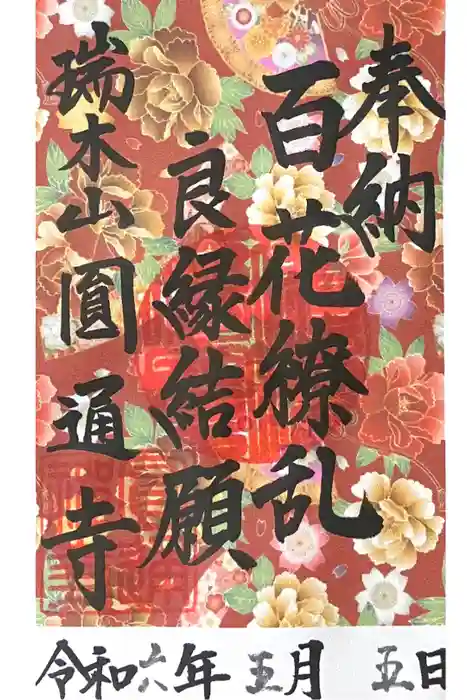 奉納
百花繚乱
良縁結願
瑞木山圓通寺
令和六年 五月 五日